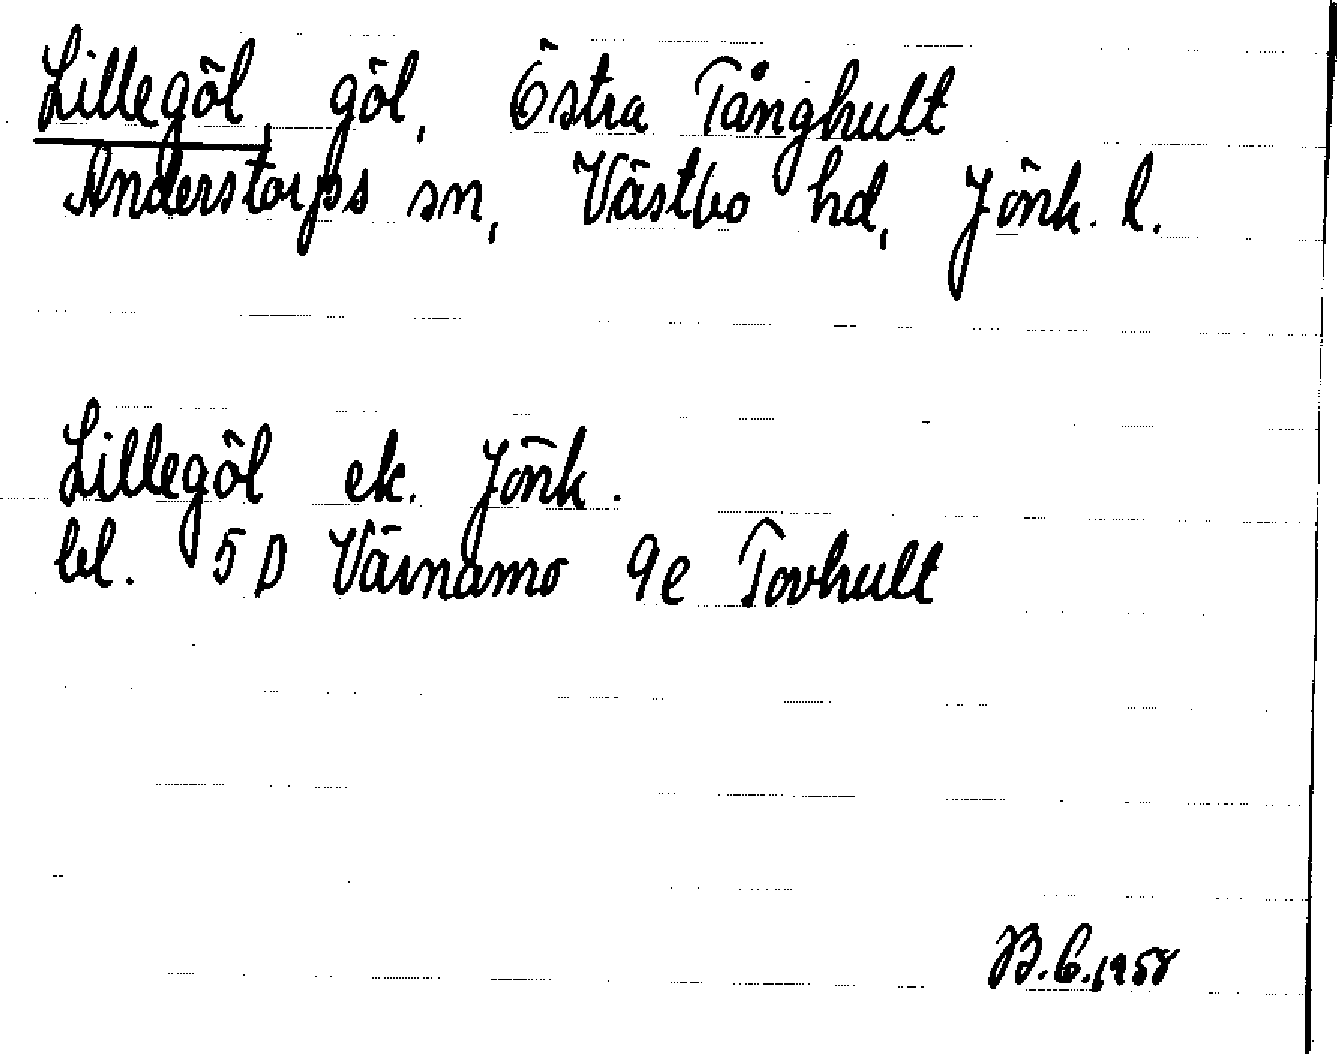 Lillegöl, göl, Östra Tånghult
Anderstorps sn, Västbo hd, Jönk. l.
Lillegöl ek. Jönk.
bl. 5 D Värnamo 9e Tovhult
B.G. 1958